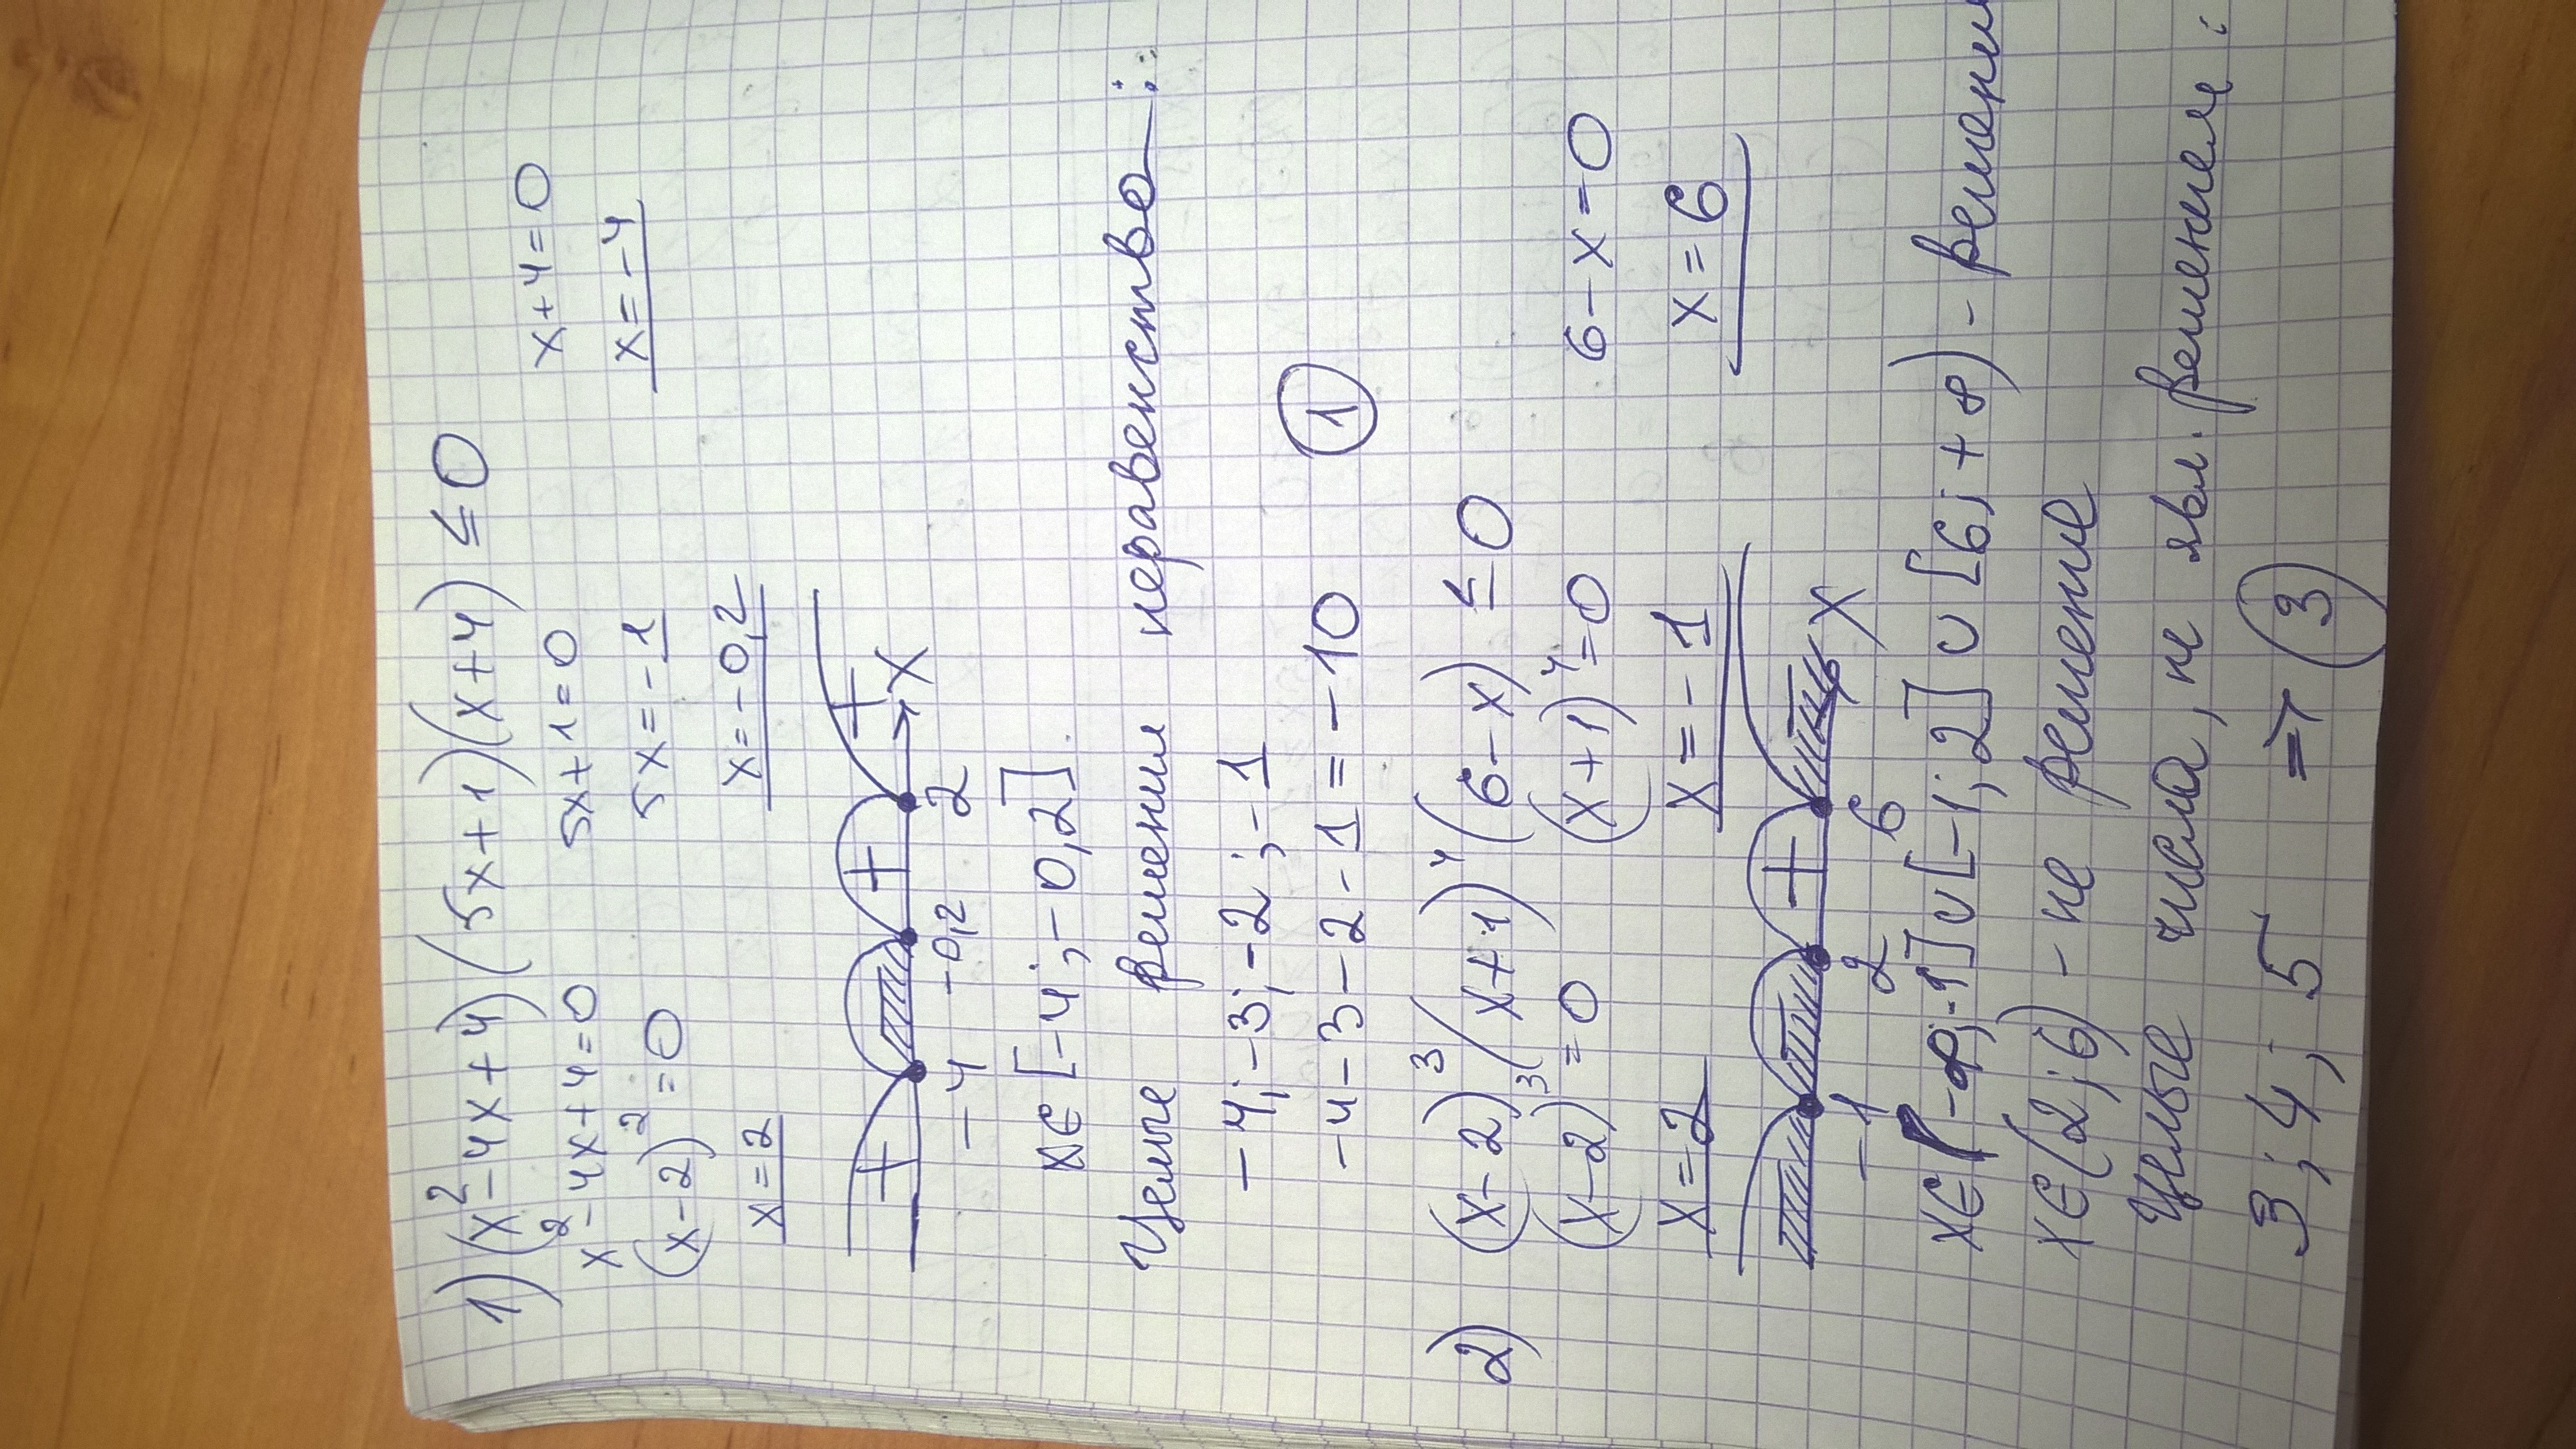 1) (x²-4x+4)(5x+1)(x+4) ≤ 0
x²-4x+4=0 5x+1=0 x+4=0
(x-2)²=0 5x=-1 x=-4
x=2 x=-0,2
+ + + x
-4 -0,2 2
x∈[-4;-0,2].
Целые решения неравенства:
-4;-3;-2;-1
-4-3-2-1=-10 1
2) (x-2)³(x+1)⁴(6-x) ≤ 0
(x-2)³=0 (x+1)⁴=0 6-x=0
x=2 x=-1 x=6
+ x
-1 2 6
x∈(-∞;-1]∪[-1;2]∪[6;+∞) - решени
x∈(2;6) - не решение
Целые числа, не явл. решением:
3; 4; 5 => 3